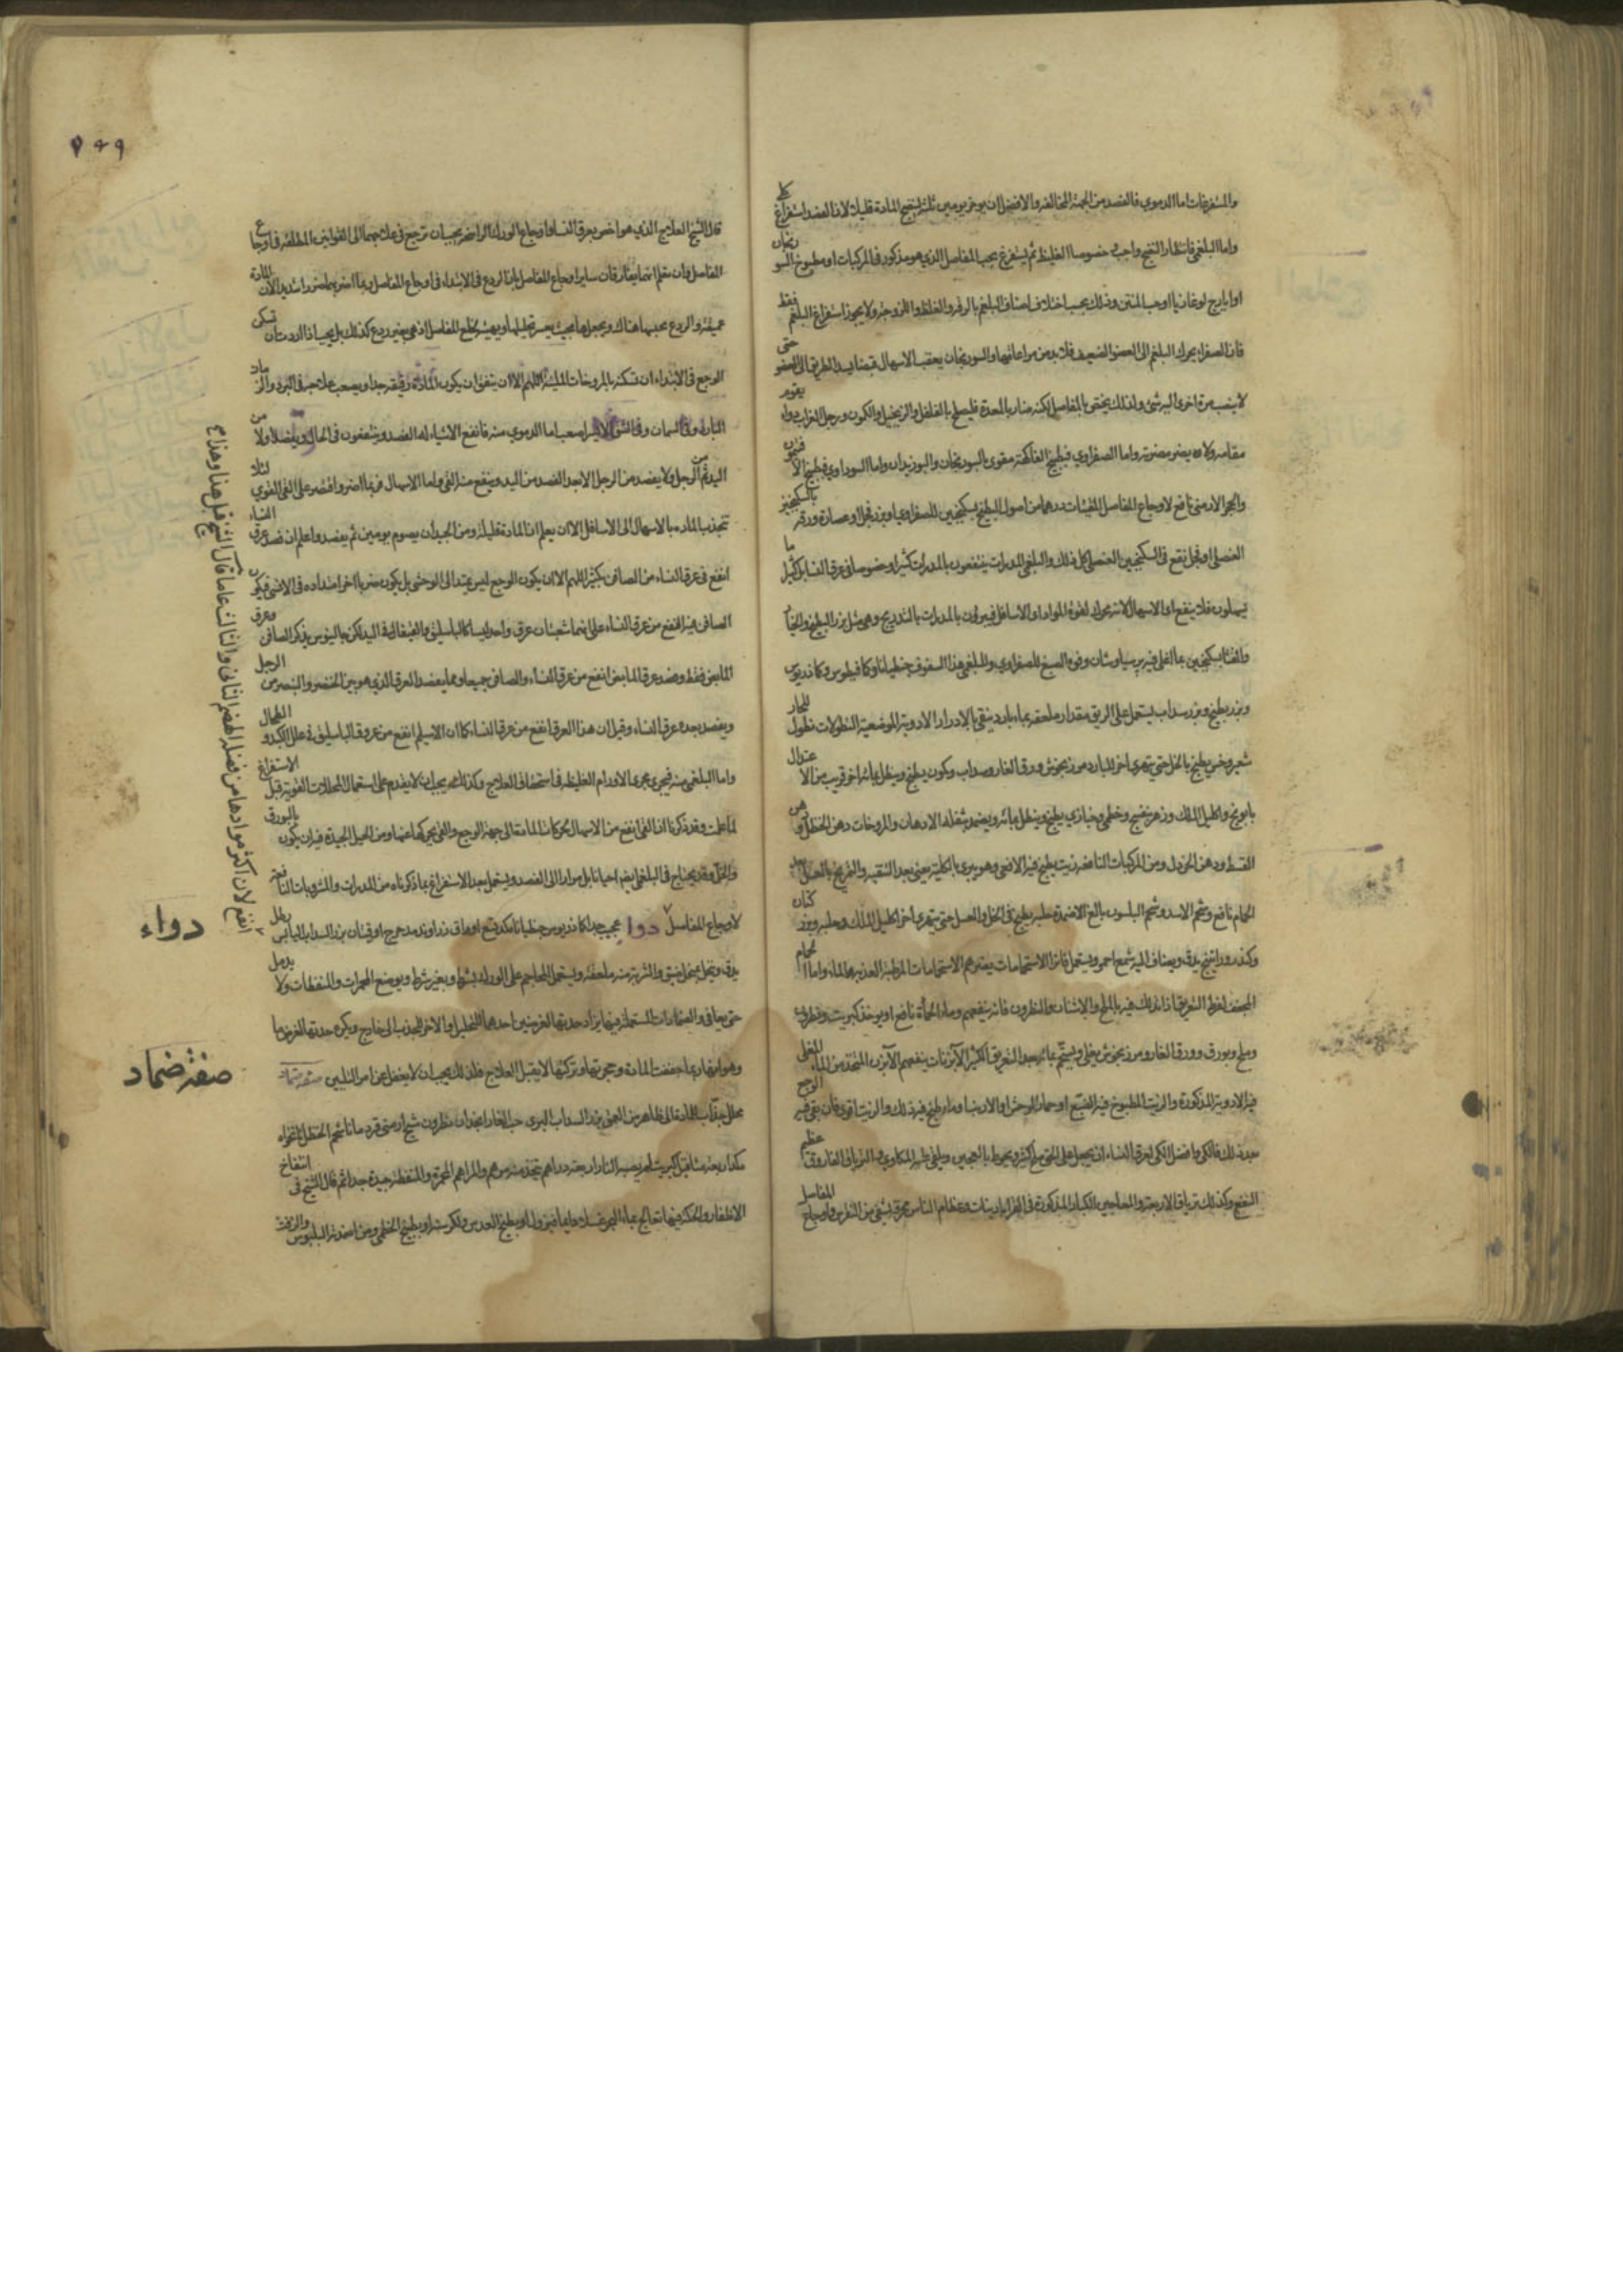 والمستفرغات اما الدموي فالفصد من الجهة المخالفة والافضل ان يؤخر يومين ثلثة لينضج المادة قليلا لان الفصد استفراغ كلي
واما البلغمي فانتظار النضج واجب خصوصا الغليظ ثم يستفرغ بحب المفاصل الذي هو مذكور في المركبات او مطبوخ السورنجان
او ايارج لوغاذيا او حب المنتن وذلك بحسب اختلاف اصناف البلغم بالرقة والغلظ واللزوجة ولا يجوز استفراغ البلغم فقط
فان الصفراء يحرك البلغم الى العضو الضعيف فلا بد من مراعاتهما والسورنجان يعقب الاسهال قبضا يسد الطريق الى العضو حتى
لا ينصب مرة اخرى اليه شئ ولذلك يختص بالمفاصل لكنه ضار بالمعدة فليصلح بالفلفل والزنجبيل والكمون ورجل الغراب دواء يقوم
مقامه ولا يضر مضرته واما الصفراوي فبطبيخ الفاكهة مقوى بالسورنجان والبوزيدان واما السوداوي فبطبيخ الافتيمون
والحجر الارمني نافع لاوجاع المفاصل المقيئات درهما من اصول البطيخ بسكنجبين للصفراوي او بزر فجل وعصارة ورقه بالسكنجبين
العنصلي او فجل نقع في السكنجبين العنصلي كل ذلك والبلغمي المدرات ينتفعون بالمدرات كثيرا وخصوصا في عرق النسا بل كثيرا ما
يسهلون فلا ينفع او الاسهال لانه يحرك لقوة المواد الى الاسافل فيبرؤن بالمدرات بالتدريج وهي مثل بزر البطيخ والخيار
والقثا بسكنجبين بما اغلي فيه برسياوشان وفوة الصبغ للصفراوي وللبلغمي هذا السفوف جنطيانا وكمافيطوس وكماذريوس
وبزر بطيخ وبزر سداب يستعمل على الريق مقدار ملعقة بماء بارد ينقي بالادرار الادوية الموضعية النطولات نطول للحار
شعير وخس يطبخ بالخل حتى يتهرى اخر للبارد مرزنجوش ورق الغار وسداب وكمون يطبخ وينطل بمائه اخر قريب من الاعتدال
بابونج واكليل الملك وزهر بنفسج وخطمي وخبازي يطبخ وينطل بمائه ويضمد بثفله الادهان والمروخات دهن الحنظل ودهن
القسط ودهن الخردل ومن المركبات النافعة زيت يطبخ فيه الافعى وهو يبرئ بالكلية يعني بعد التنقية والتمريخ بالعسل بعد
الحمام نافع وشحم الاسد وشحم البلسون بالغ الاضمدة حلبة يطبخ في الخل والعسل حتى يتهرى اخر اكليل الملك وحلبة وبزر كتان
وكندر وراتينج يدق ويضاف اليه شمع احمر ويستعمل فاترا الاستحمامات يضرهم الاستحمامات الرطبة العذبة الماء واما الحمام
المجفف لفرط التعريق اذا دلك فيه بالملح والاشنان والنطرون فانه ينفعهم وماء الحمأة نافع او يوخذ كبريت ونطرون
وملح وبورق وورق الغار ومرزنجوش يغلي ويستحم بمائه بعد التعريق الكثير الابزنات ينفعهم الآبزن المتخذ من الماء المغلي
فيه الادوية المذكورة والزيت المطبوخ فيه الضبع او حمار الوحش او الارنب او ماء طبخ فيه ذلك والزيت اقوى فان بقي فيه الوجع
بعد ذلك فالكي وافضل الكي لعرق النساء ان يجعل على الحق ملح كثير ويحوط بالعجين ويلقي عليه المكاوي والترياق الفاروق عظيم
النفع وكذلك ترياق الاربعة والمعاجين الكبار المذكورة في القراباذينات وعظام الناس محرقة يشفي من النقرس واوجاع المفاصل
٧٤٩
قال الشيخ العلاج الذي هو اخص بعرق النسا واوجاع الورك الراهنة يجب ان ترجع في علاجهما الى القوانين المطلقة في اوجاع
المفاصل وان تعلم انهما يفارقان سائر اوجاع المفاصل بان الردع في الابتداء في اوجاع المفاصل ربما اضر بهما ضررا شديدا لان المادة
عميقة والردع يحبسها هناك ويجعلها بحيث يعسر تحليلها ويهيئ لخلع المفاصل اذ هي بغير ردع كذلك بل يجب اذا اردت ان تسكن
الوجع في الابتداء ان تسكنه بالمروخات الملينة اللهم الا ان يتفق ان يكون المادة رقيقة جدا ويصعب علاجه في البرد والزماد
البارد وفي السمان وفي الشق الايسر اصعب اما الدموي منه فانفع الاشياء له الفصد وينتفعون في الحال ويفصد اولا من
اليد ثم من الرجل ولا يفصد من الرجل الا بعد الفصد من اليد وينفع منه القي واما الاسهال فربما اضر واقتصر على القي القوي لئلا
تنجذب المادة بالاسهال الى الاسافل الا ان يعلم ان المادة قليلة ومن الجيد ان يصوم يومين ثم يفصد واعلم ان فصد عرق النساء
انفع في عرق النساء من الصافن بكثير اللهم الا ان يكون الوجع ليس يمتد الى الوحشي بل يكون ضربا اخر امتداده في الانسي فيكون
الصافن فيه انفع من عرق النساء على انهما شعبتان عرق واحد ليسا كالباسليق والقيفال في اليد لكن جالينوس يذكر الصافن وعرق
المابض فقط وفصد عرق المابض انفع من عرق النساء والصافن جميعا ومما يفصد العرق الذي هو بين الخنصر والبنصر من الرجل
ويفصد بعده عرق النساء وقيل ان هذا العرق انفع من عرق النساء كما ان الاسيلم انفع من عرق الباسليق في علل الكبد والطحال
واما البلغمي منه فيجري مجرى الاورام الغليظة في استحقاق العلاج وكذلك يجب ان لا يقدم على استعمال المحللات القوية قبل الاستفراغ
لما علمت وقد ذكرنا ان القي انفع من الاسهال تحركات المادة الى جهة الوجع والقي يحركها عنها ومن الحيل الجيدة فيه ان يكون بالبورق
والخل وقد يحتاج في البلغمي ايضا احيانا بل مرارا الى الفصد ويستعمل بعد الاستفراغ ما ذكرناه من المدرات والمشروبات النافعة
لاوجاع المفاصل دواء عجيب جدا كماذريوس جنطيانا مكد تسع اواق زراوند مدحرج اوقيتان بزر السداب اليابس رطل
يدق وينخل بمنخل ضيق والشربة منه ملعقة ويستعمل المحاجم على الورك بشرط وبغير شرط ويوضع المحمرات والمنفطات ولا يدمل
حتى يعافى والضمادات المستعملة فيها يزاد حدتها لغرضين احدهما للتحليل والاخر للجذب الى خارج ويكره حدتها لغرض ما
وهو انها ربما جففت المادة وحجرتها وتركتها لا يقبل العلاج فلذلك يجب ان لا يغفل عن امر التليين صفة ضماد
محلل جذاب للمادة الى ظاهر من العمق بزر السداب البري حب الغار انجدان نطرون شيح ارمني قردمانا شحم الحنظل نانخواه
الاظفار والحكة فيها تعالج بماء البحر غسلا دايما فيزول او بطبيخ العدس والكرسنة او بطبيخ الخطمي ومن اضمدته البلبوس والزفت
دواء
صفة ضماد